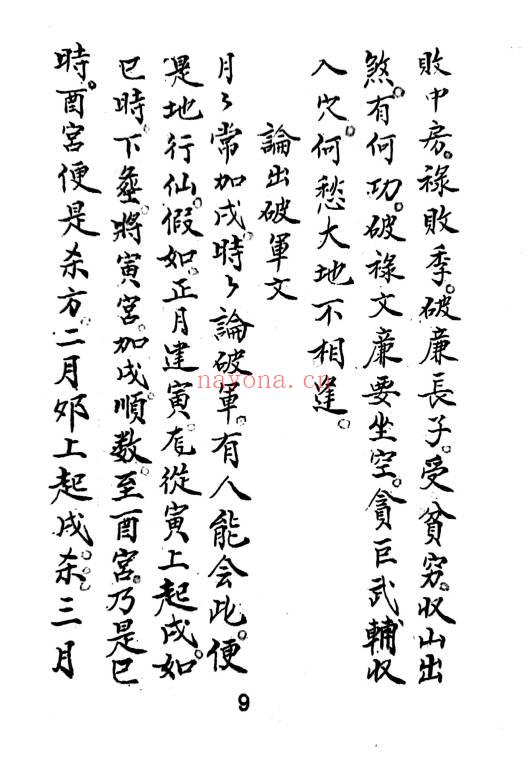 敗中房。祿敗季。破廉長子。受貧穷。收山出
煞。有何功。破祿文廉要坐空。貪巨武輔收
入穴。何愁大地不相逢。
論出破軍文
月々常加戌。時々論破軍。有人能会此。便
是地行仙。假如。正月建寅。
從寅上起戌。如
巳時。下
將寅宮。加戌順数。至酉宮。乃是巳
時。酉宮便是杀方。二月卯上起戌。杀。三月
nayona.cn
9